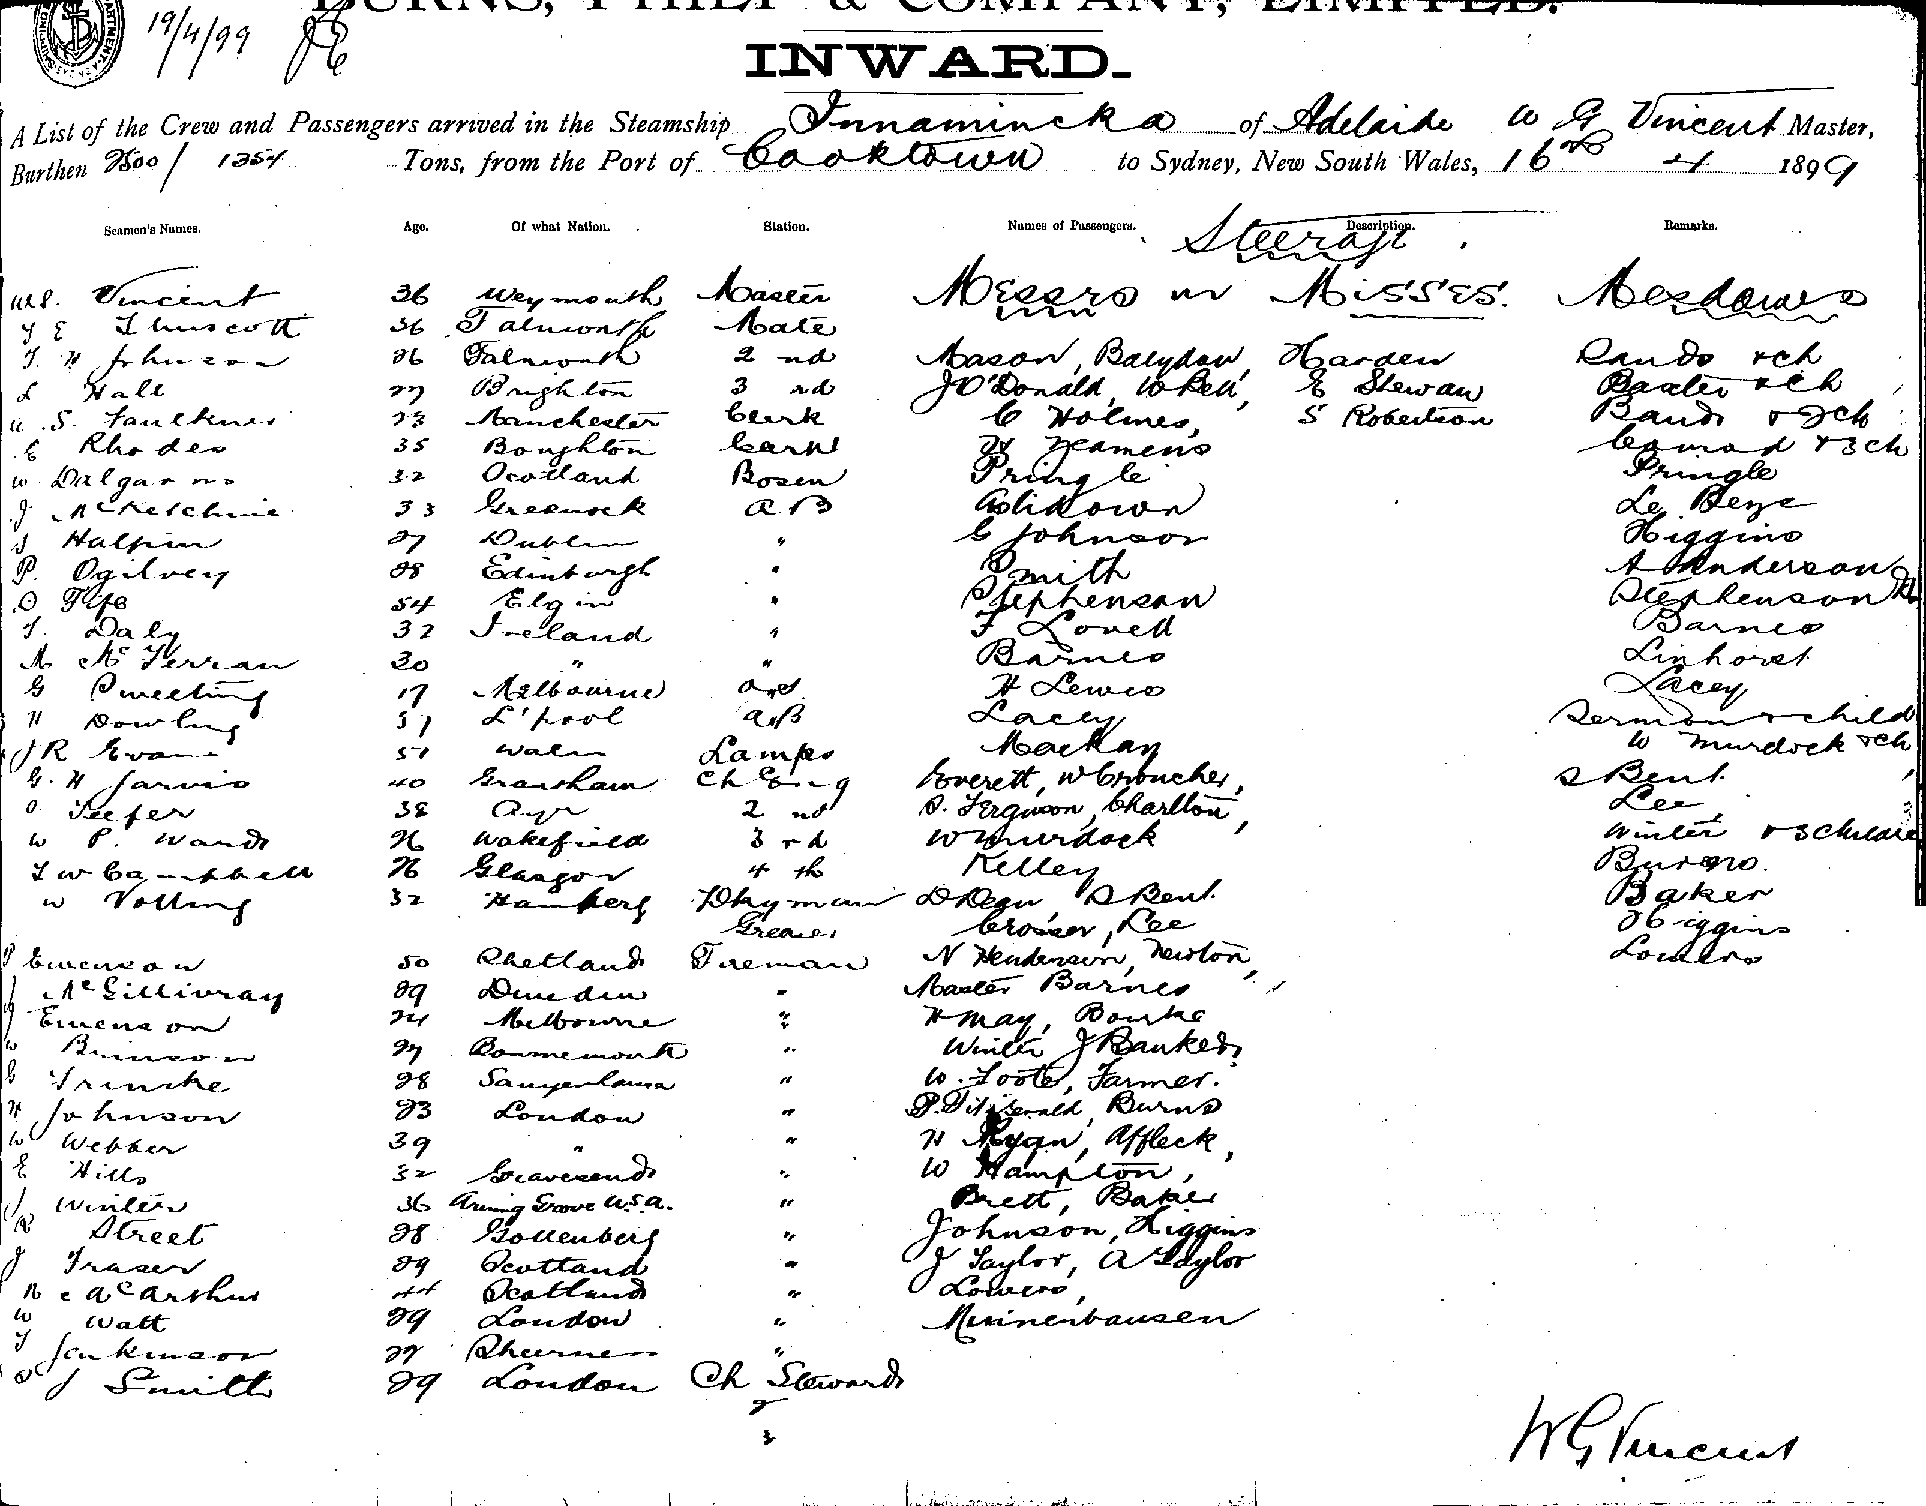 BURNS, PHILP & COMPANY, LIMITED.
19/4/99
INWARD.
A List of the Crew and Passengers arrived in the Steamship Innamincka of Adelaide W G Vincent Master,
Burthen 2500/1254 Tons, from the Port of Cooktown to Sydney, New South Wales, 16 4 1899
Seamen's Names. Age. Of what Nation. Station. Names of Passengers. Description. Remarks.
Steerage
Vincent 36 Weymouth Master Messrs Misses Mesdames
T E Thuscott 36 Falmouth Mate
T. H Johnson 26 Falmouth 2nd Mason, Harden Rands & ch
L Hall 27 Brighton 3rd J O'Donald, W Bell, E Stewart Baxter & ch
S. Faulkner 23 Manchester Clerk C Holmes, S Robertson Bands & 2ch
E Rhodes 35 Boughton Carp H Yeamens Conrad & 3ch
W Dalgarno 32 Scotland Bosen Pringle Pringle
J McKetchnie 33 Greenock AB Ashdown Le Beye
J Halpin 27 Dublin " C Johnson Higgins
P. Ogilvey 28 Edinburgh " Smith A Anderson
O Fife 54 Elgin " Stephenson Stephenson
T. Daly 32 Ireland " F Lovell Barnes
M McFerran 30 " " Barnes Linhorst
G Sweeting 17 Melbourne O.S. H Lewis Lacey
H Dowling 37 L'pool A.B Lacey Sermon & child
J R Evans 51 Wales Lamps Mackay W Murdock & ch
G. H Jarvis 40 Gransham Ch Eng Everett, W Croucher, S Bent
O Teefer 38 Ayr 2nd S. Ferguson, Charlton, Lee
W P. Wards 26 Wakefield 3rd W Murdock Winter & 3 childre
T W Campbell 26 Glasgow 4th Kelley Burns
W Volling 32 Hamberg Dkyman D Dean, S Bent Baker
Greaser Crosser, Lee Higgins
Ewenson 50 Shetland Fireman N Henderson, Newton, Lowers
J McGillivray 29 Dunedin " Master Barnes
J Ewenson 24 Melbourne " H May, Bourke
W Brinson 27 Bournemouth " Winter J Bankeds,
28 " W. Foote, Farmer.
H Johnson 23 London " P. Fitzgerald, Burns
W Webber 39 " " H Ryan, Affleck,
E Hills 32 Gravesend " W Hampton,
J Winter 36 Grove U.S.A. " Brett, Baker
R Street 28 Gottenberg " Johnson, Higgins
J Fraser 29 Scotland " J Taylor, A Taylor
R McArthur 44 Scotland " Lowers,
W Watt 29 London " Munnenhausen
T Jenkinson 27 Sheerness "
J Smith 29 London Ch Steward
2
3
W G Vincent